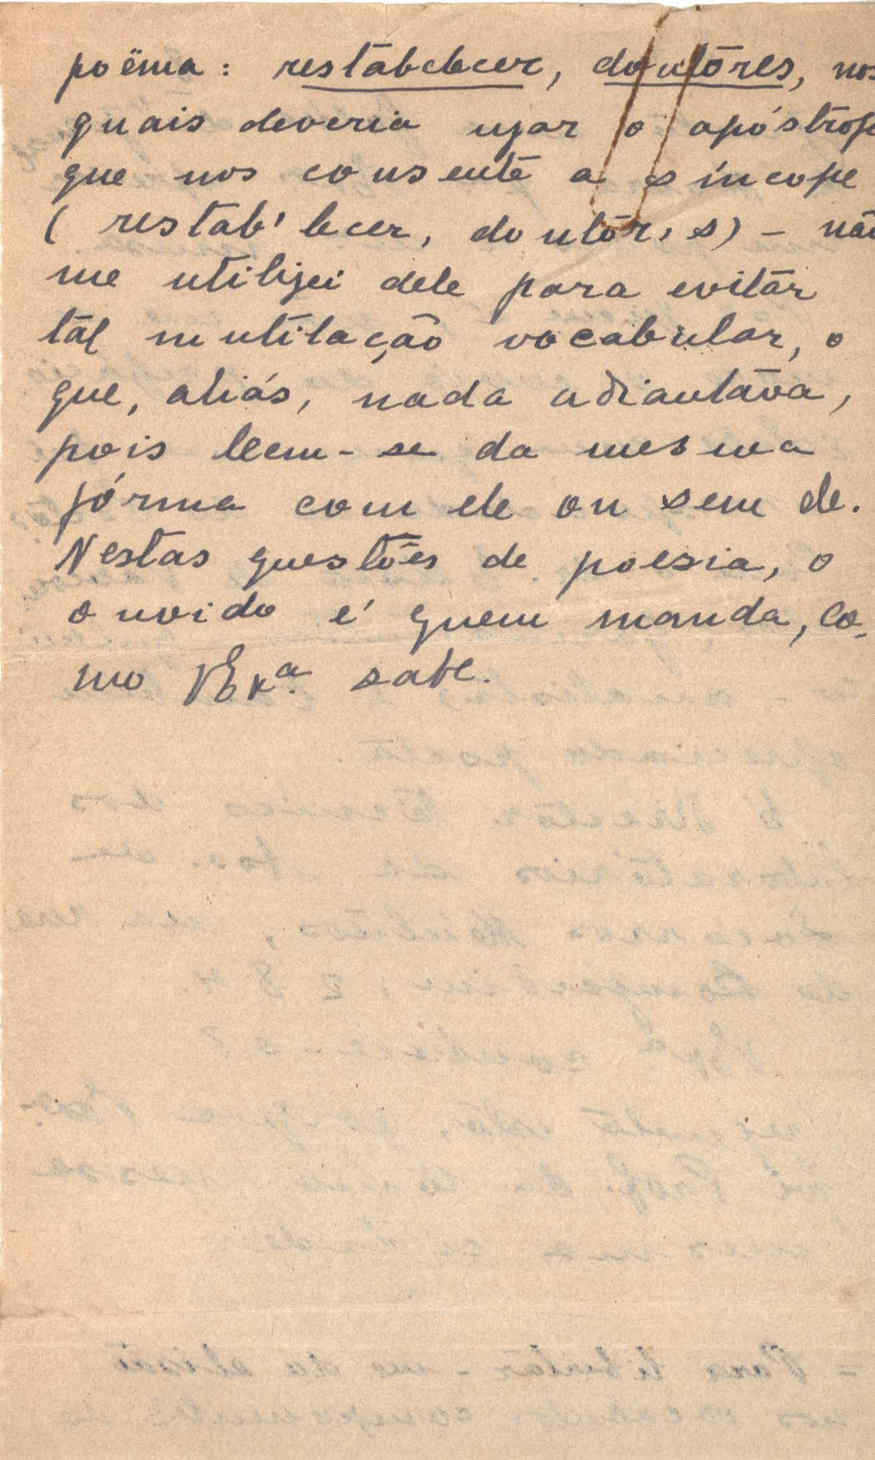 poëma: restabelecer, doutôres, nos
quais deveria uzar o apóstrofe
que nos consente a síncope
(restab'lecer, doutôr's) - não
me utilizei dele para evitar
tal mutilação vocabular, o
que, aliás, nada adiantava,
pois lêem-se da mesma
fórma com ele ou sem ele.
Nestas questões de poesia, o
ouvido é quem manda, co-
mo V Exª. sabe.